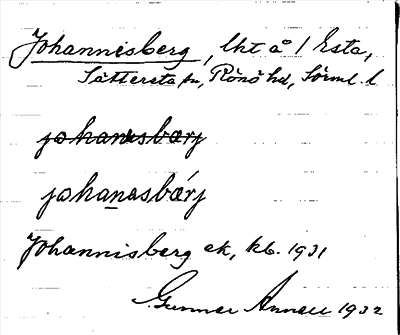 Johannisberg, lht å 1 Esta,
Sättersta sn, Rönö hd, Sörml. l
johanesbærj
johanasbǽrj
Johannisberg ek, kb. 1931
Gunnar 1932